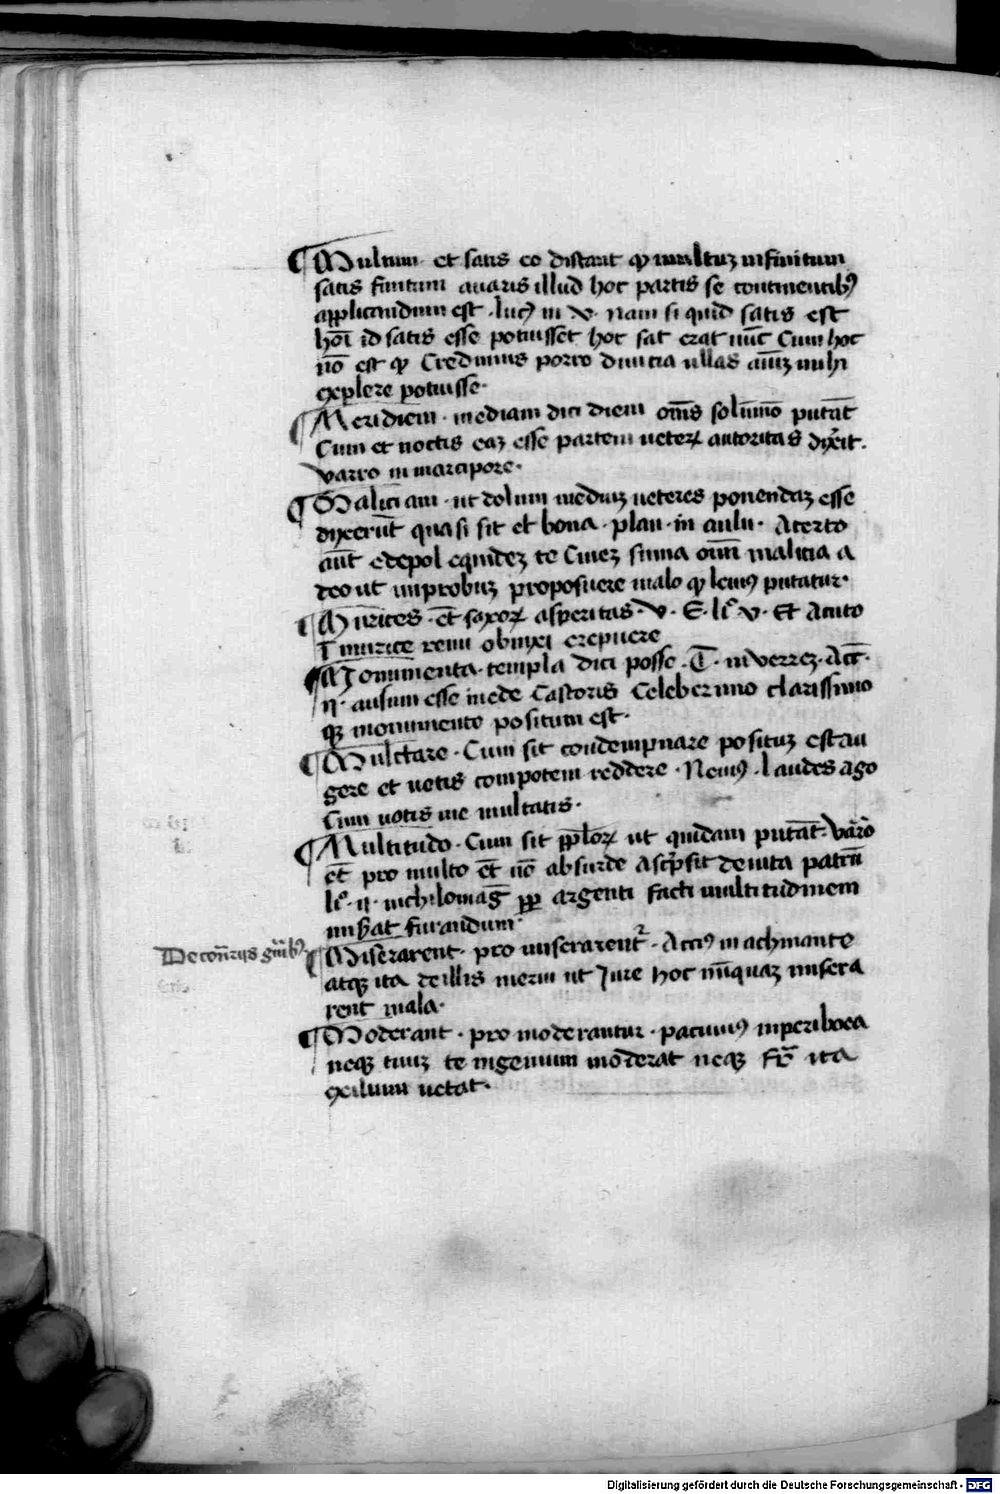 ¶ Multum · et satis eo distant ꝙ multuꝫ infinitum
satis finitum auaris illud hoc partis se continentibꝰ
applicandum est · lucꝰ in v · nam si quid satis est
hoı̄ id satis esse potuisset hoc sat erat nūc Cum hoc
nō est ꝙ Credimus porro diuicia ullas aīuꝫ mihi
explere potuisse ·
¶ Meridiem · mediam dici diem om̄s solūmō putāt
Cum et noctis eaꝫ esse partem ueterꝝ autoritas dix̄it ·
varro in marcipore ·
¶ Maliciam · ut dolum meduꝫ ueteres ponendaꝫ esse
dixerūt quasi sit et bona · plau · in aulu · Atcrto
aūt edepol equideꝫ te Ciueꝫ sinna om̄i malicia a
deo ut improbuꝫ proposuere malo ꝙ leuiꝰ putatur ·
¶ Murices · ēt saxorꝝ asperitas · v · E · liº v · Et Acuto
ī murice remi obnixi crepuere
¶ Monumenta · templa dici posse · T̄ · in verreꝫ · Act̄ ·
ij · ausum esse inede Castoris Celeberimo clarissimo
qꝫ monumento positum est ·
¶ Mulctare · Cum sit condempnare posituꝫ est au
gere et uotis compotem reddere · Neuiꝰ · laudes ago
Cum uotis me multatis ·
¶ Multitudo · Cum sit pp̄lorꝝ ut quidam putāt · varō
ēt pro multo ēt nō absurde ascp̄sit de uita patrū
liº · ij · nichilomāg ꝓꝑ argenti facti multitudinem
minꝰat furandum ·
De con̄rijs gn̄ibꝰ
¶ Miserarent · pro miserarentr̄ · Acciꝰ in achmante
atqꝫ ita de illis merui ut Iure hoc nūquaꝫ misera
rent mala ·
¶ Moderant · pro moderantur · pacuuiꝰ inperiboea
neqꝫ tuuꝫ te ingenium moderat neqꝫ fr̄ ita
exilium uetat ·
Digitalisierung gefördert durch die Deutsche Forschungsgemeinschaft - DFG